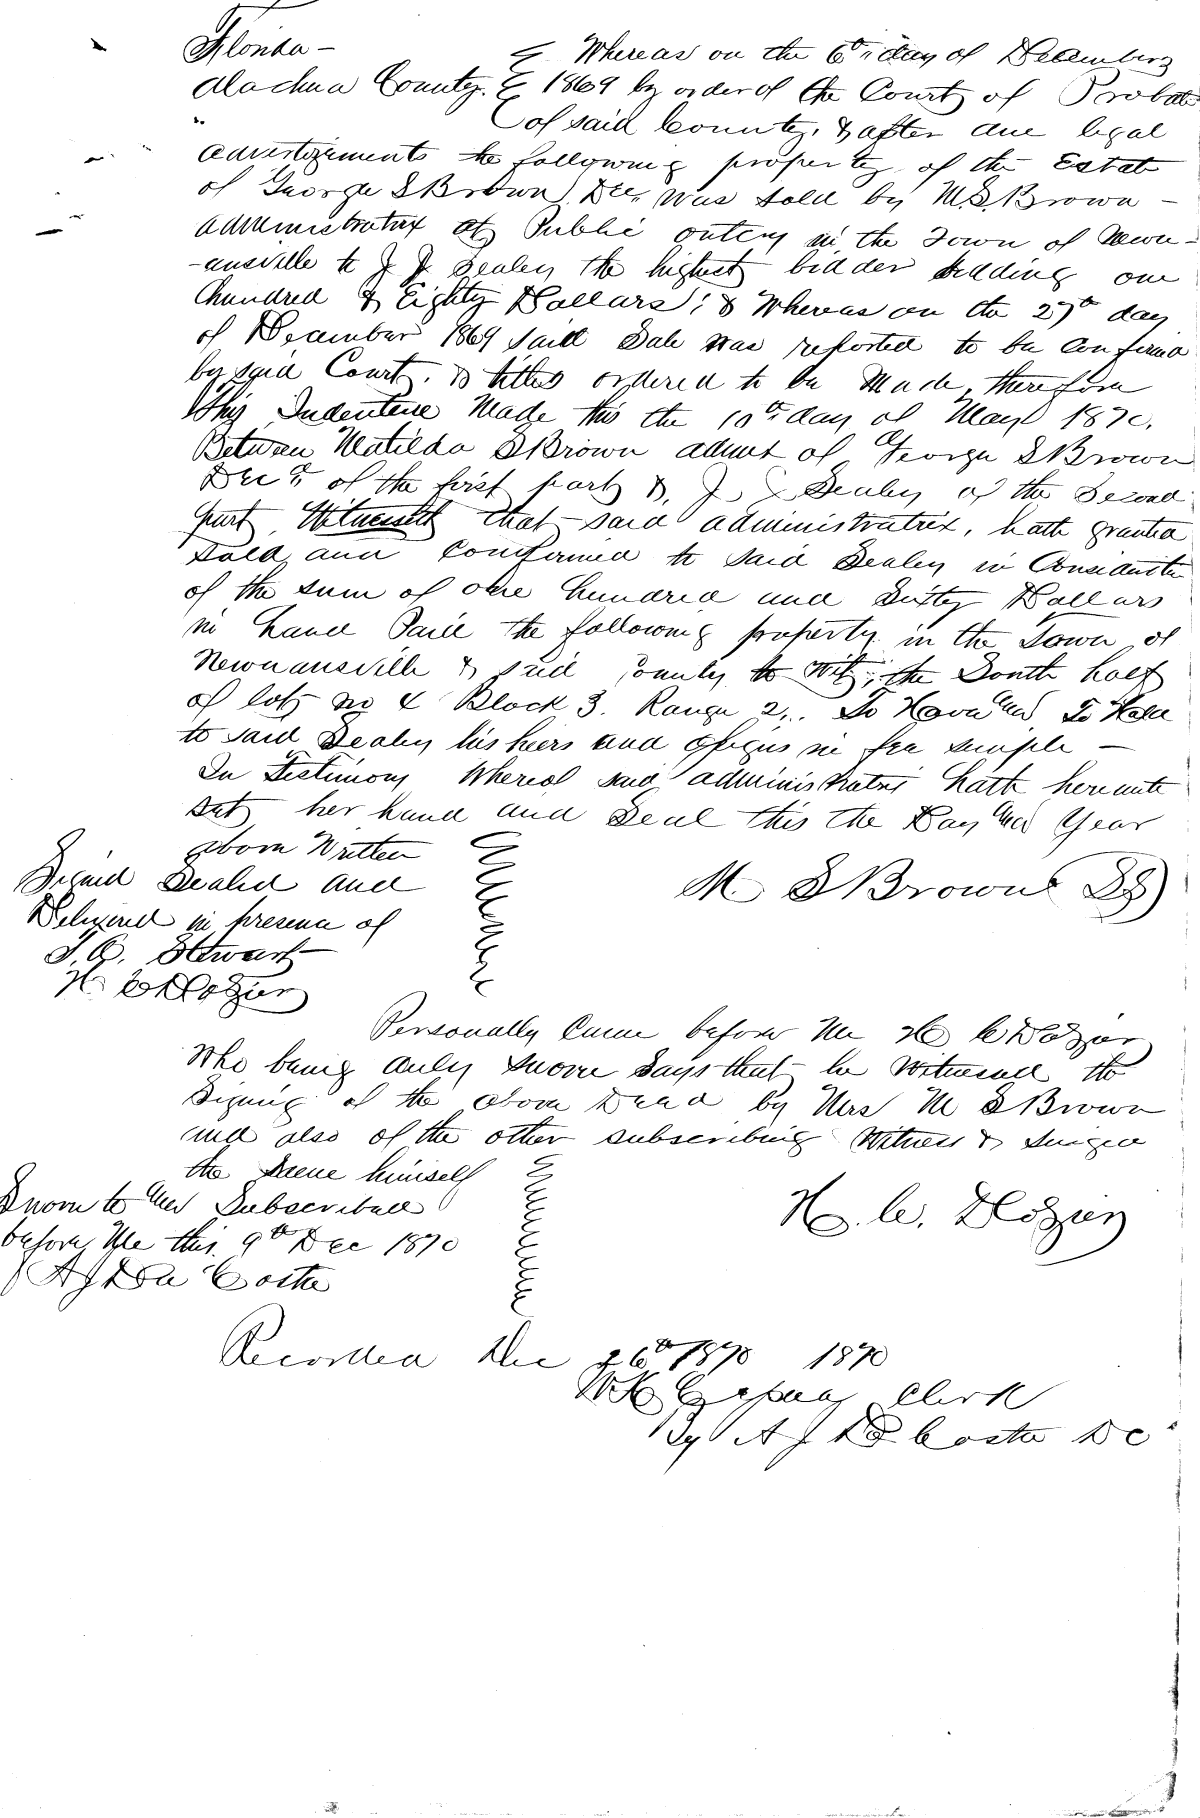 Florida –
Alachua County.
Whereas on the 6th day of December
1869 by order of the Court of Probate
of said County, & after due legal
advertizements the following property of the Estate
of George S Brown Dec. was sold by M. S. Brown –
administratrix at Public outcry in the Town of Newn-
-ansville to J J Dealey the highest bidder bidding one
hundred & Eighty Dollars; & Whereas on the 27th day
of December 1869 said Sale was reported to be confirmed
by said Court. & titles ordered to be Made, therefore
This Indenture Made this the 10th day of May 1870.
Between Matilda S Brown admx of George S Brown
Decd of the first part & J J Dealey of the Second
part Witnesseth that said administratrix, hath granted
sold and confirmed to said Dealey in Consideratn
of the sum of one hundred and Sixty Dollars
in hand Paid the following property in the Town of
Newnansville & said County to Wit; the South half
of lot no 4 Block 3. Range 2,. To Have and To Hold
to said Dealey his heirs and assigns in fee simple –
In Testimony Whereof said administratrix hath hereunto
set her hand and Seal this the Day and Year
above Written
M S Brown
Signed Sealed and
Delivered in presence of
Stewart
H C Dozier
Personally Came before Me H C Dozier
Who being duly sworn Says that he Witnessed the
Signing of the above Deed by Mrs M S Brown
and also of the other subscribing Witness & signed
the Same himself
H. C. Dozier
Sworn to and Subscribed
before Me this 9th Dec 1870
A J Da Costa
Recorded Dec 26th 1870 1870
Clerk
By A J Da Costa DC